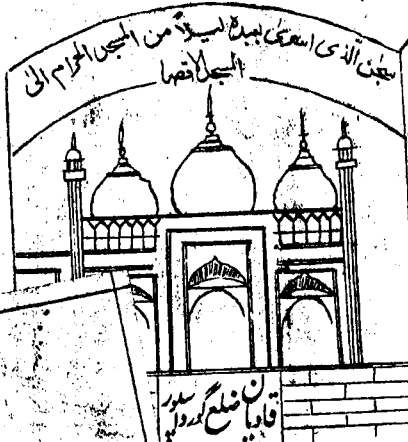 سبحٰن الذی اسریٰ بعبدہ لیلاً من المسجد الحرام الیٰ
المسجد الاقصا
قادیان ضلع گورداسپور